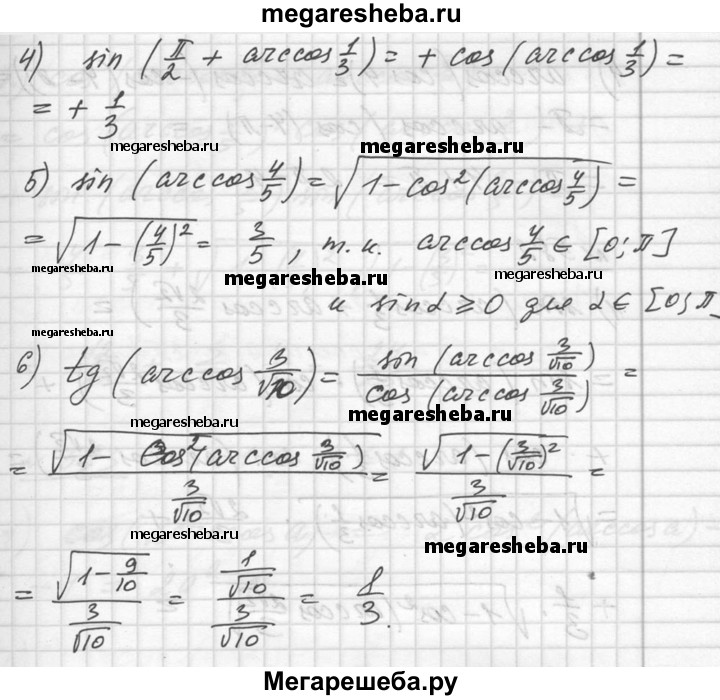 megaresheba.ru
4) sin (π/2 + arccos 1/3) = + cos (arccos 1/3) =
= + 1/3
megaresheba.ru
megaresheba.ru
5) sin (arccos 4/5) = √(1 - cos² (arccos 4/5)) =
= √(1 - (4/5)²) = 3/5, т.к. arccos 4/5 ∈ [0; π]
megaresheba.ru
megaresheba.ru
и sin α ≥ 0 для α ∈ [0; π
megaresheba.ru
6) tg (arccos 3/√10) = sin (arccos 3/√10) / cos (arccos 3/√10) =
megaresheba.ru
megaresheba.ru
= √(1 - cos² (arccos 3/√10)) / (3/√10) = √(1 - (3/√10)²) / (3/√10) =
megaresheba.ru
megaresheba.ru
= √(1 - 9/10) / (3/√10) = (1/√10) / (3/√10) = 1/3.
megaresheba.ru
Мегарешеба.ру